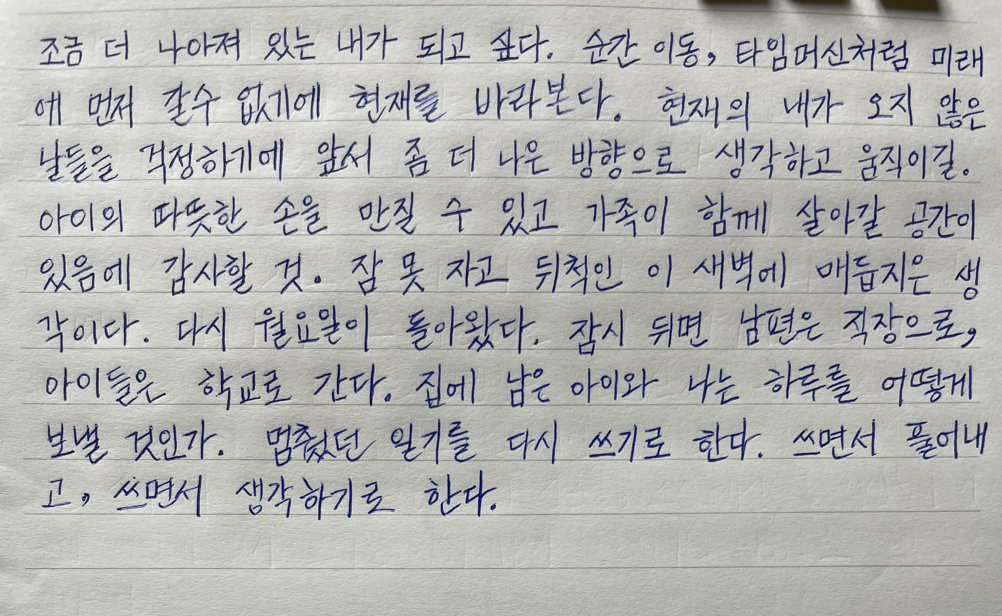 조금 더 나아져 있는 내가 되고 싶다. 순간 이동, 타임머신처럼 미래
에 먼저 갈수 없기에 현재를 바라본다. 현재의 내가 오지 않은
날들을 걱정하기에 앞서 좀 더 나은 방향으로 생각하고 움직이길.
아이의 따뜻한 손을 만질 수 있고 가족이 함께 살아갈 공간이
있음에 감사할 것. 잠 못 자고 뒤척인 이 새벽에 매듭지은 생
각이다. 다시 월요일이 돌아왔다. 잠시 뒤면 남편은 직장으로,
아이들은 학교로 간다. 집에 남은 아이와 나는 하루를 어떻게
보낼 것인가. 멈췄던 일기를 다시 쓰기로 한다. 쓰면서 풀어내
고, 쓰면서 생각하기로 한다.